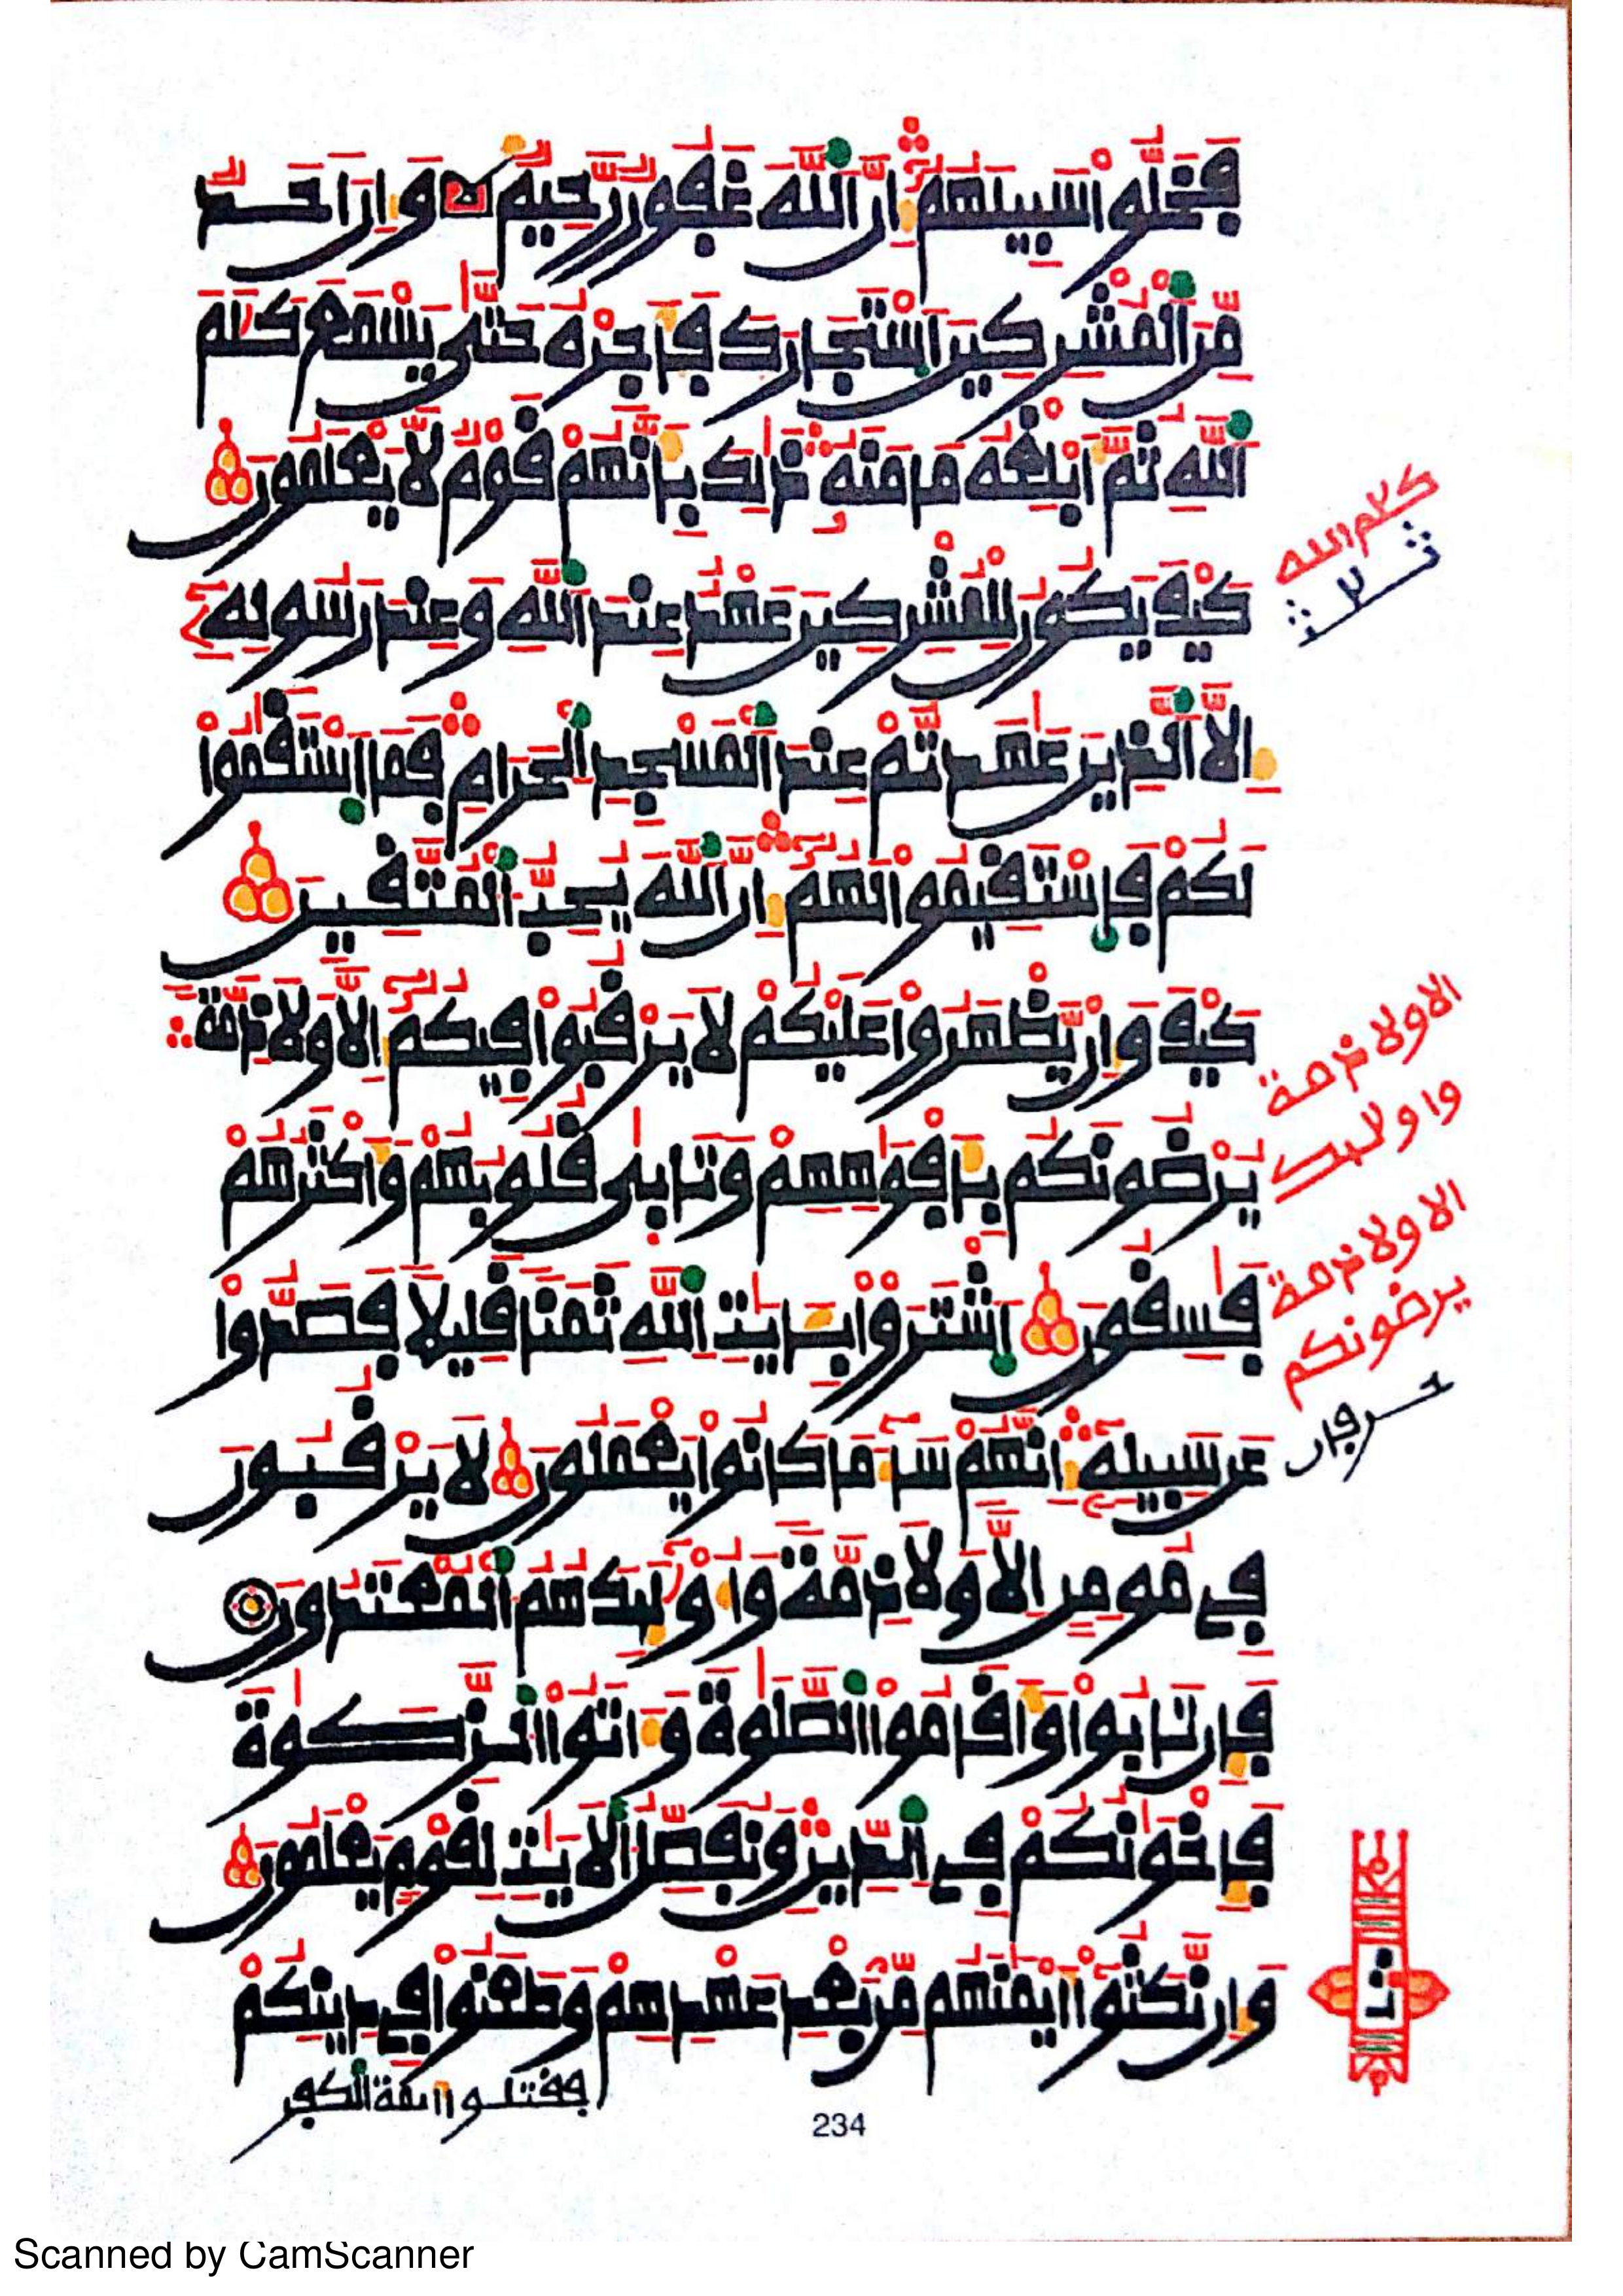 فَخَلُّواْ سَبِيلَهُمُۥٓ إِنَّ اَللَّهَ غَفُورٞ رَّحِيمٞ وَإِنَ اَحَدٞ
مِّنَ اَلْمُشْرِكِينَ اَسْتَجَارَكَ فَأَجِرْهُ حَتَّىٰ يَسْمَعَ كَلَٰمَ
اَللَّهِ ثُمَّ أَبْلِغْهُ مَامَنَهُۥ ذَٰلِكَ بِأَنَّهُمْ قَوْمٞ لَّا يَعْلَمُونَ
كَيْفَ يَكُونُ لِلْمُشْرِكِينَ عَهْدٌ عِندَ اَللَّهِ وَعِندَ رَسُولِهِۦٓ
إِلَّا اَلذِينَ عَٰهَدتُّمْ عِندَ اَلْمَسْجِدِ اِلْحَرَامِ فَمَا اَسْتَقَٰمُواْ
لَكُمْ فَاسْتَقِيمُواْ لَهُمُۥٓ إِنَّ اَللَّهَ يُحِبُّ اَلْمُتَّقِينَ
كَيْفَ وَإِنْ يَّظْهَرُواْ عَلَيْكُمْ لَا يَرْقُبُواْ فِيكُمُۥٓ إِلّاٗ وَلَا ذِمَّةٗ
يُرْضُونَكُم بِأَفْوَٰهِهِمْ وَتَابِىٰ قُلُوبُهُمْ وَأَكْثَرُهُمْ
فَٰسِقُونَ اَشْتَرَوْاْ بِـَٔايَٰتِ اِللَّهِ ثَمَناٗ قَلِيلاٗ فَصَدُّواْ
عَن سَبِيلِهِۦٓ إِنَّهُمْ سَآءَ مَا كَانُواْ يَعْمَلُونَ لَا يَرْقُبُونَ
فِي مُومِنٍ إِلّاٗ وَلَا ذِمَّةٗ وَأُوْلَٰٓئِكَ هُمُ اُلْمُعْتَدُونَ
فَإِن تَابُواْ وَأَقَامُواْ اُلصَّلَوٰةَ وَءَاتَوُاْ اُلزَّكَوٰةَ
فَإِخْوَٰنُكُمْ فِي اِلدِّينِ وَنُفَصِّلُ اُلْأيَٰتِ لِقَوْمٖ يَعْلَمُونَ
وَإِن نَّكَثُواْ أَيْمَٰنَهُم مِّنۢ بَعْدِ عَهْدِهِمْ وَطَعَنُواْ فِي دِينِكُمْ
فقتلوا أئمة الكفر
كلم الله
ث ٢ ث
الا ولا ذمة
واولئك
الا ولا ذمة
يرضونكم
حرفان
234
Scanned by CamScanner